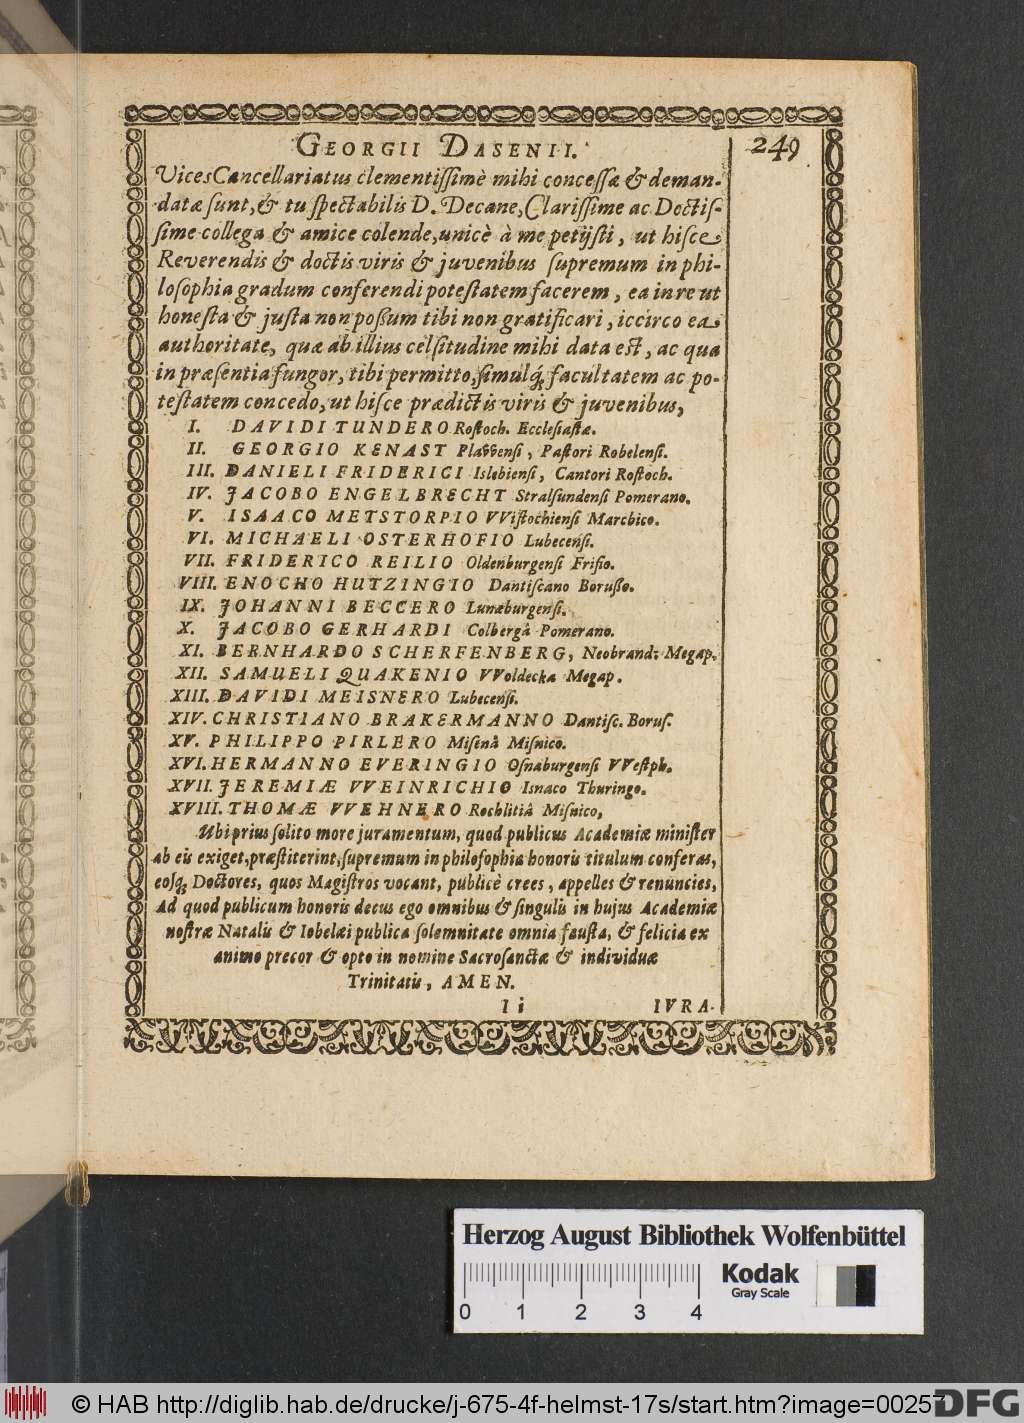 GEORGII DASENII. 249
Vices Cancellariatus clementissimè mihi concessæ & deman-
datæ sunt, & tu spectabilis D. Decane, Clarissime ac Doctis-
sime collega & amice colende, unicè à me petijsti, ut hisce
Reverendis & doctis viris & juvenibus supremum in phi-
losophia gradum conferendi potestatem facerem, ea in re ut
honesta & justa non possum tibi non gratificari, iccirco ea
authoritate, quæ ab illius celsitudine mihi data est, ac qua
in præsentia fungor, tibi permitto, simulq́; facultatem ac po-
testatem concedo, ut hisce prædictis viris & juvenibus,
I. DAVIDI TUNDERO Rostoch. Ecclesiastæ.
II. GEORGIO KENAST Plavvensi, Pastori Robelensi.
III. DANIELI FRIDERICI Islebiensi, Cantori Rostoch.
IV. JACOBO ENGELBRECHT Stralsundensi Pomerano.
V. ISAACO METSTORPIO VVistochiensi Marchico.
VI. MICHAELI OSTERHOFIO Lubecensi.
VII. FRIDERICO REILIO Oldenburgensi Frisio.
VIII. ENOCHO HUTZINGIO Dantiscano Borusso.
IX. JOHANNI BECCERO Lunæburgensi.
X. JACOBO GERHARDI Colbergâ Pomerano.
XI. BERNHARDO SCHERFENBERG, Neobrand: Megap.
XII. SAMUELI QUAKENIO VVoldecka Megap.
XIII. DAVIDI MEISNERO Lubecensi.
XIV. CHRISTIANO BRAKERMANNO Dantisc. Borus.
XV. PHILIPPO PIRLERO Misenâ Misnico.
XVI. HERMANNO EVERINGIO Osnaburgensi VVestph.
XVII. JEREMIÆ VVEINRICHIO Isnaco Thuringo.
XVIII. THOMÆ VVEHNERO Rochlitiâ Misnico,
Ubi prius solito more juramentum, quod publicus Academiæ minister
ab eis exiget, præstiterint, supremum in philosophia honoris titulum conferas,
eosq́; Doctores, quos Magistros vocant, publicè crees, appelles & renuncies,
Ad quod publicum honoris decus ego omnibus & singulis in hujus Academiæ
nostræ Natalis & Iobelæi publica solemnitate omnia fausta, & felicia ex
animo precor & opto in nomine Sacrosanctæ & individuæ
Trinitatis, AMEN.
I i IVRA-
Herzog August Bibliothek Wolfenbüttel
Kodak
Gray Scale
0 1 2 3 4
© HAB http://diglib.hab.de/drucke/j-675-4f-helmst-17s/start.htm?image=00257
DFG